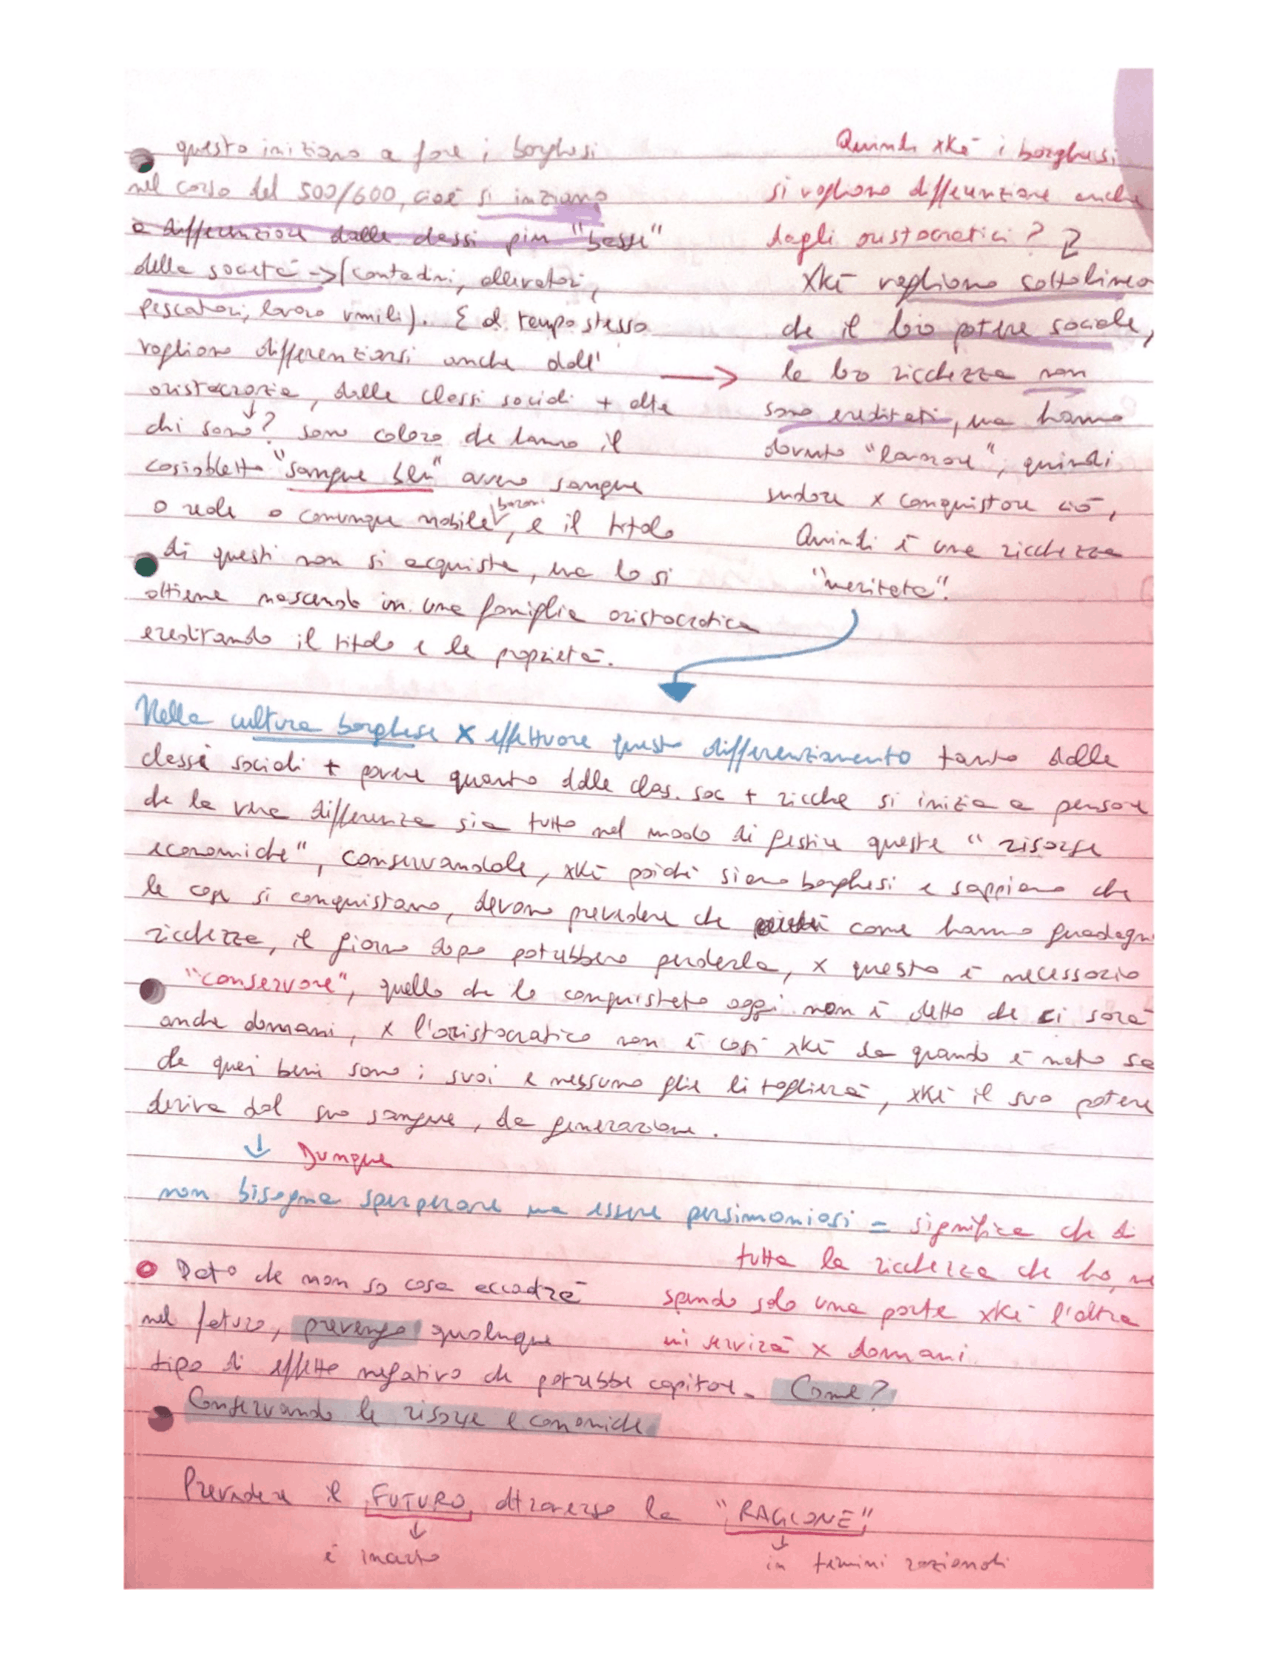 questo iniziano a fare i borghesi
nel corso del 500/600, cioè si iniziano
a differenziare dalle classi più "basse"
della società -> (contadini, allevatori,
pescatori, lavoro umili). E al tempo stesso
vogliono differenziarsi anche dall'
aristocrazia, dalle classi sociali + alte
chi sono? sono coloro che hanno il
cosiddetto "sangue blu" ovvero sangue
o reale o comunque nobile, e il titolo
baroni
di questi non si acquista, ma lo si
ottiene nascendo in una famiglia aristocratica
ereditando il titolo e le proprietà.
Quindi xkè i borghesi
si vogliono differenziare anche
dagli aristocratici?
Xkè vogliono sottolinea
che il loro potere sociale,
la loro ricchezza non
sono ereditati, ma hanno
dovuto "lavorare", quindi
sudare x conquistare ciò,
Quindi è una ricchezza
"meritata".
Nella cultura borghese x effettuare questo differenziamento tanto dalle
classi sociali + povere quanto dalle clas. soc + ricche si inizia a pensare
che la vera differenza sia tutto nel modo di gestire queste "risorse
economiche", conservandole, xkè poiché siamo borghesi e sappiamo che
le cose si conquistano, devono prevedere che come hanno guadagn
ricchezza, il giorno dopo potrebbero perderla, x questo è necessario
"conservare", quello che ho conquistato oggi non è detto che ci sarà
anche domani, x l'aristocratico non è così xkè da quando è nato sa
che quei beni sono i suoi e nessuno glie li toglierà, xkè il suo potere
deriva dal suo sangue, da generazione.
↓ Dunque
non bisogna sperperare ma essere parsimoniosi = significa che di
tutta la ricchezza che ho, ne
spendo solo una parte xkè l'altra
mi servirà x domani.
Dato che non so cosa accadrà
nel futuro, prevengo qualunque
tipo di effetto negativo che potrebbe capitare. Come?
Conservando le risorse economiche
Prevedere il FUTURO attraverso la "RAGIONE"
↓ è incerto
↓ in termini razionali